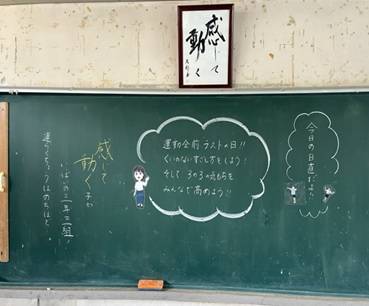 感じて
動く
今日の日直だよ
運動会前 ラストの日!!
くいのないすごし方をしよう!
そして 3の3の気もちを
みんなで高めよう!!
感じて
動く子が
いっぱいの三年三組!